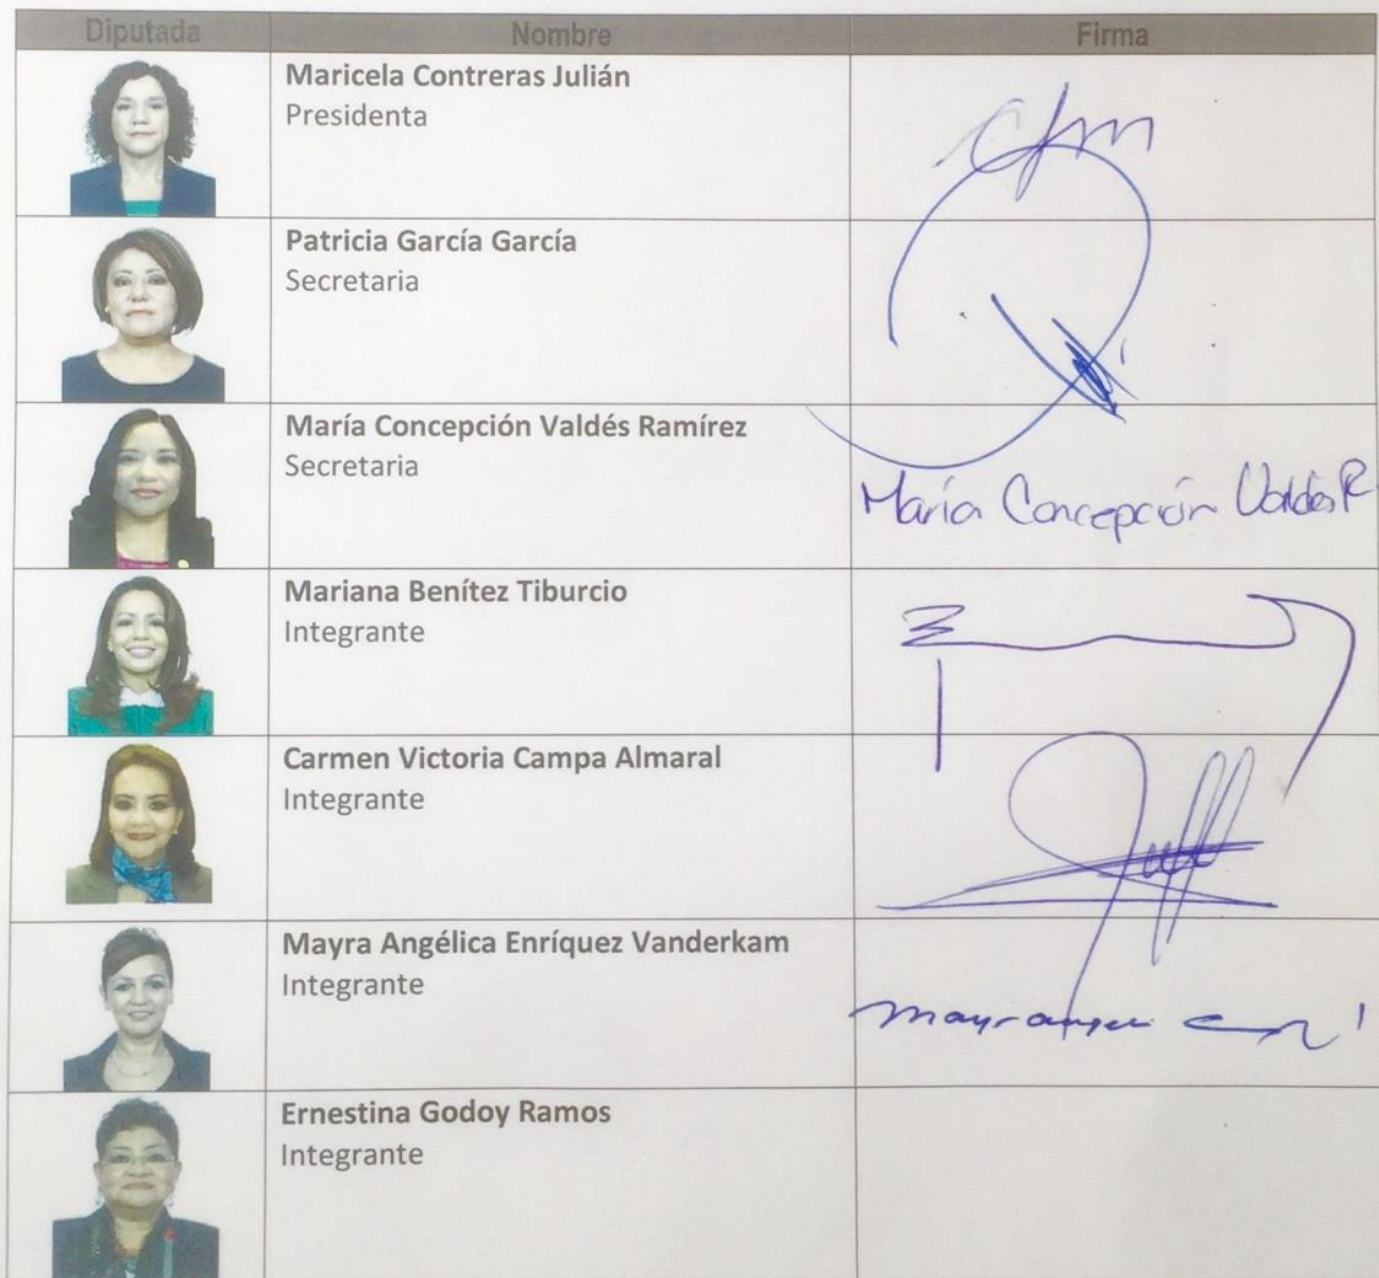 Diputada Nombre Firma
Maricela Contreras Julián
Presidenta
Patricia García García
Secretaria
María Concepción Valdés Ramírez
Secretaria
María Concepción Valdés R
Mariana Benítez Tiburcio
Integrante
Carmen Victoria Campa Almaral
Integrante
Mayra Angélica Enríquez Vanderkam
Integrante
Ernestina Godoy Ramos
Integrante